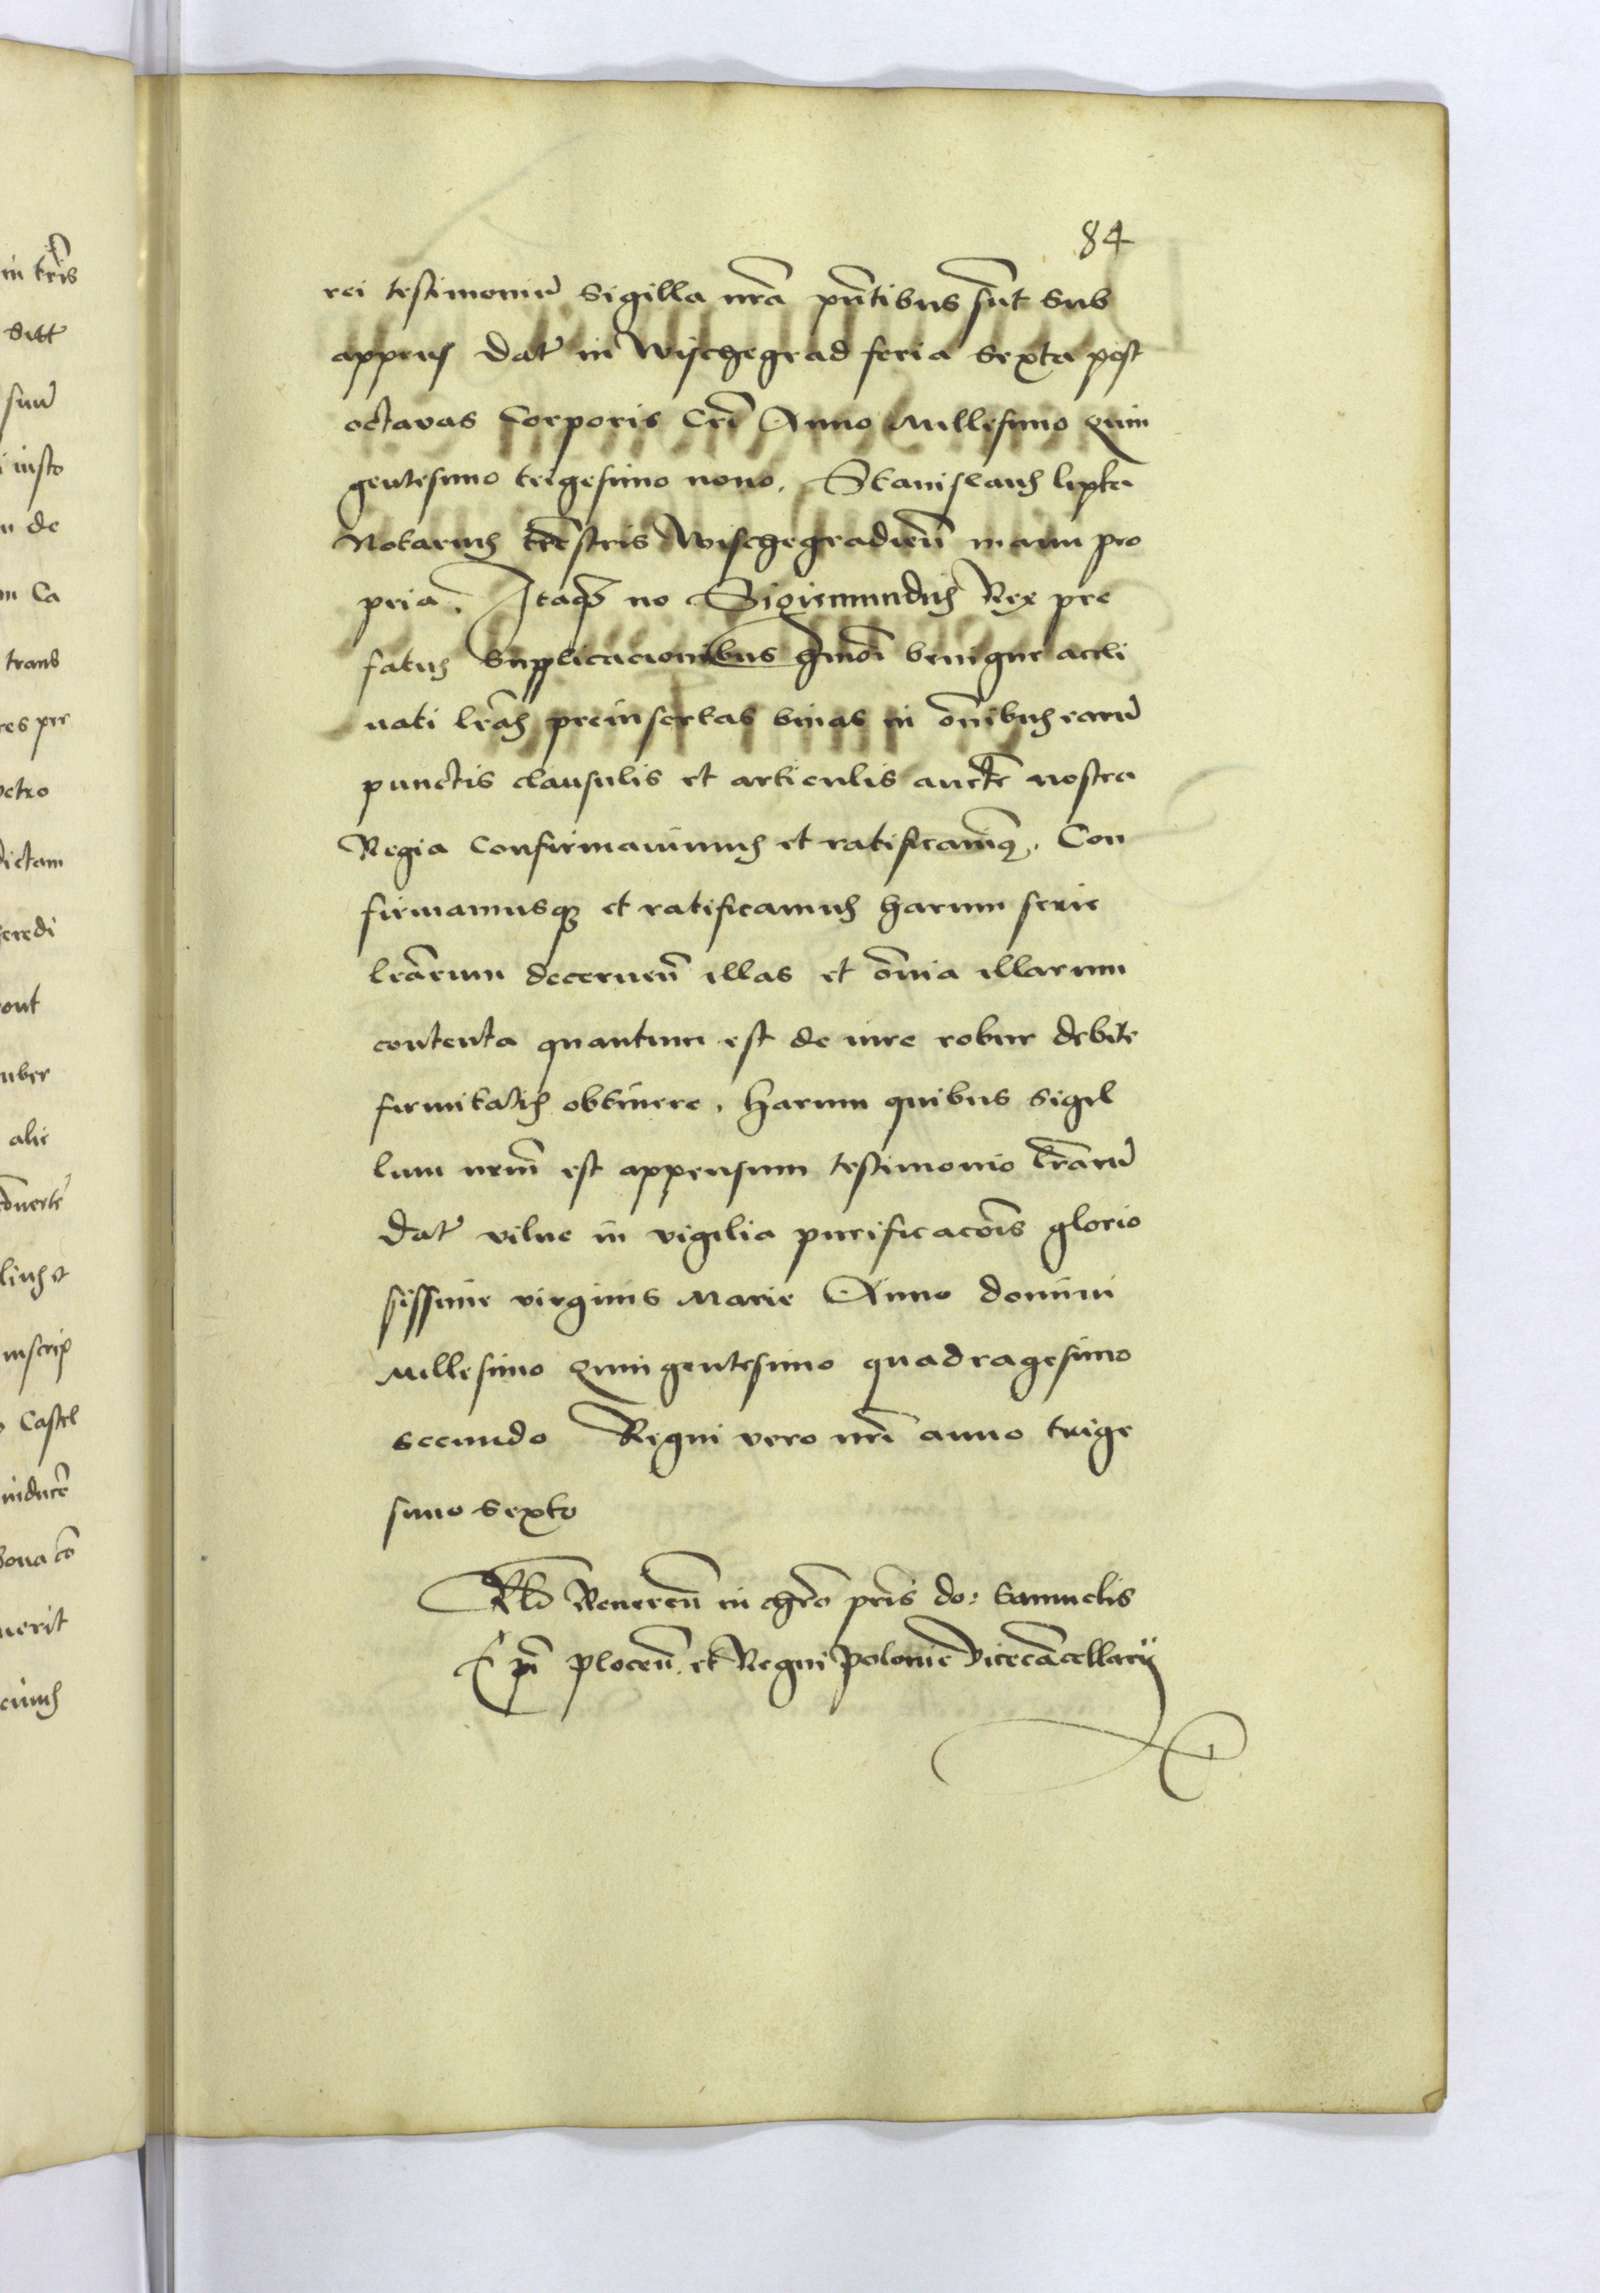 84
rei testimoniū sigilla nrā pn̄tibus sūt sub
appens̄ Dat̄ in Wischegrad feria sexta post
octavas Corporis Cri̅ Anno Millesimo quin
gentesimo trigesimo nono. Stanislaus lipka
Notarius trēstris Wischegradien̄ manu pro
pria. Itaqꝫ no Sigismundus Rex pre
fatus supplicacionibus hmōi benigne accli
nati lrās preinsertas binas in oībus earū
punctis clausulis et articulis auctē nostra
Regia confirmavimus et ratificavimꝰ. Con
firmamusqꝫ et ratificamus harum serie
lrārum decernen̄ illas et oīa illarum
contenta quantum est de iure robur debite
firmitatis obtinere. Harum quibus sigil
lum nrm̄ est appensum testimonio lrārū
Dat̄ vilne in vigilia purificacōis glorio
sissime virginis Marie Anno domini
Millesimo quingentesimo quadragesimo
secundo Regni vero nrī anno trige
simo sexto
Rlō Reveren̄ in chro pris̄ do: Samuelis
Epī plocen̄. et Regni polonie Vicecācellarij
in trīs
sitt
suū
iusto
de
Ca
trans
es pre
petro
dictam
heredi
ont
uber
alie
inscrip
Castel
inducē
bona cō
uerit